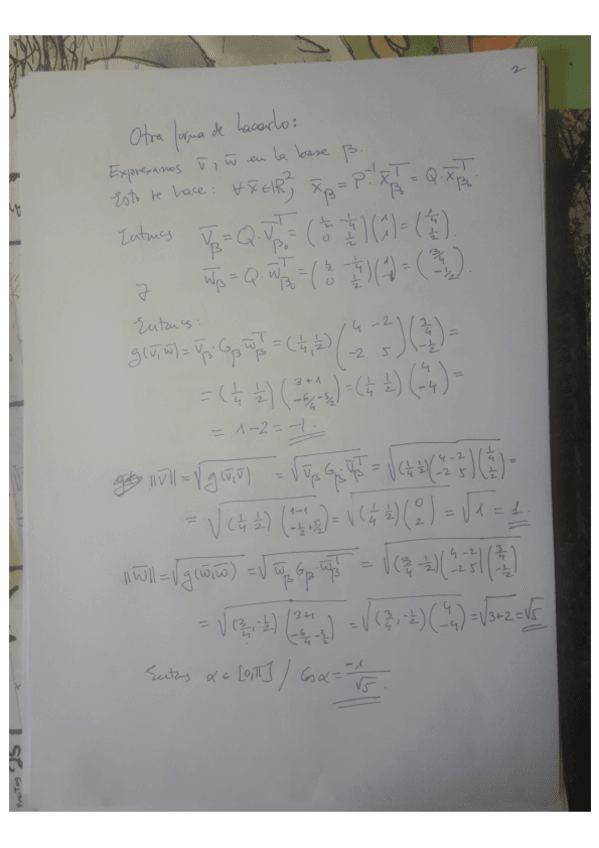 2
Otra forma de hacerlo:
Expresamos v̅, w̅ en la base β.
Esto se hace: ∀ x̅ ∈ ℝ², x̅_β = P⁻¹·x̅_β^T = Q·x̅_β₀^T
Entonces v̅_β = Q·v̅_β₀^T = (1/2 -1/4; 0 1/2)(1; 1) = (1/4; 1/2).
y w̅_β = Q·w̅_β₀^T = (1/2 -1/4; 0 1/2)(1; -1) = (3/4; -1/2).
Entonces:
g(v̅,w̅) = v̅_β·G_β·w̅_β^T = (1/4, 1/2)(4 -2; -2 5)(3/4; -1/2) =
= (1/4 1/2)(3+1; -6/4 -5/2) = (1/4 1/2)(4; -4) =
= 1-2 = -1.
||v̅|| = √g(v̅,v̅) = √v̅_β G_β·v̅_β^T = √(1/4 1/2)(4 -2; -2 5)(1/4; 1/2) =
= √(1/4 1/2)(1-1; -1/2+5/2) = √(1/4 1/2)(0; 2) = √1 = 1.
||w̅|| = √g(w̅,w̅) = √w̅_β G_β·w̅_β^T = √(3/4 -1/2)(4 -2; -2 5)(3/4; -1/2)
= √(3/4, -1/2)(3+1; -6/4 -5/2) = √(3/4, -1/2)(4; -4) = √3+2 = √5
Entonces α ∈ [0,π] / Cos α = -1/√5.